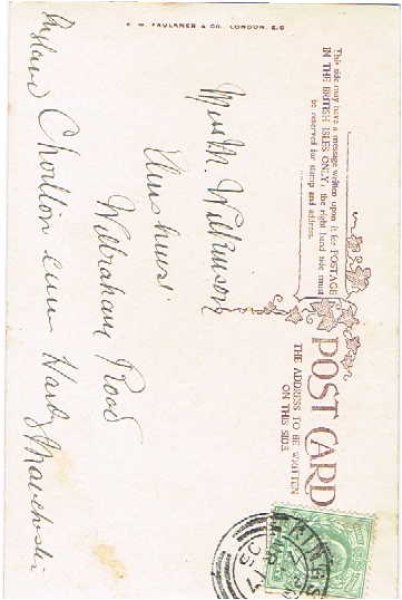 This side may have a message written upon it for POSTAGE
IN THE BRITISH ISLES ONLY, the right hand side must
be reserved for stamp and address.
POST CARD
THE ADDRESS TO BE WRITTEN
ON THIS SIDE
Wilkinson
Wilbraham Road
Chorlton cum Hardy Manchester
England
C. W. FAULKNER & CO. LONDON. E.C
KINGS